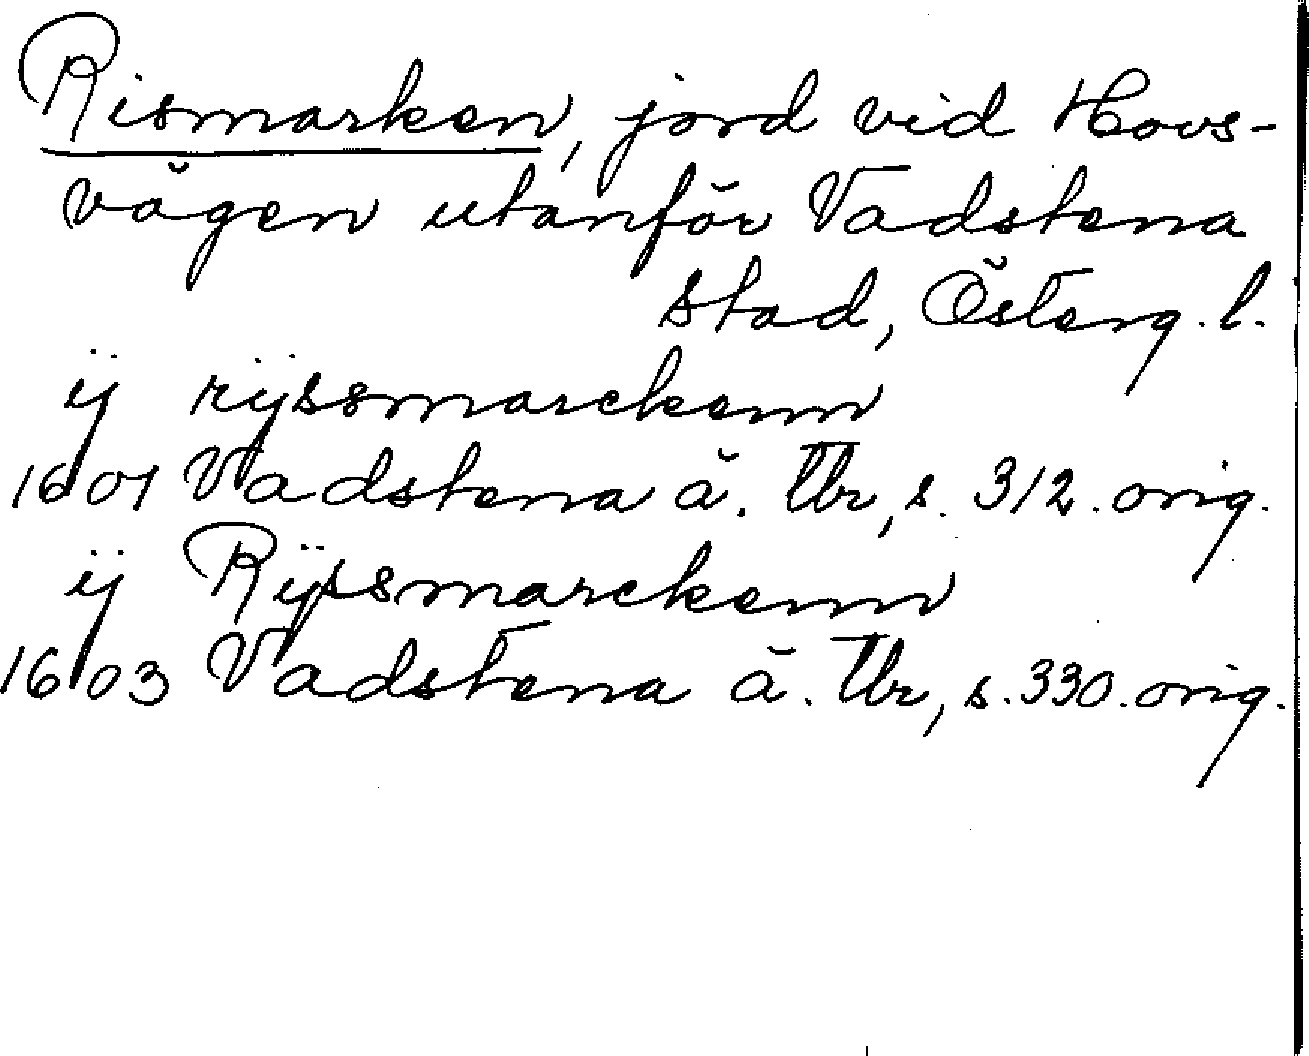 Rismarken, jord vid Hovs-
vägen utanför Vadstena
stad, Österg. l.
ij rijssmarckenn
1601 Vadstena ä. Tbr, s. 312. orig.
ij Rÿssmarckenn
1603 Vadstena ä. Tbr, s. 330. orig.